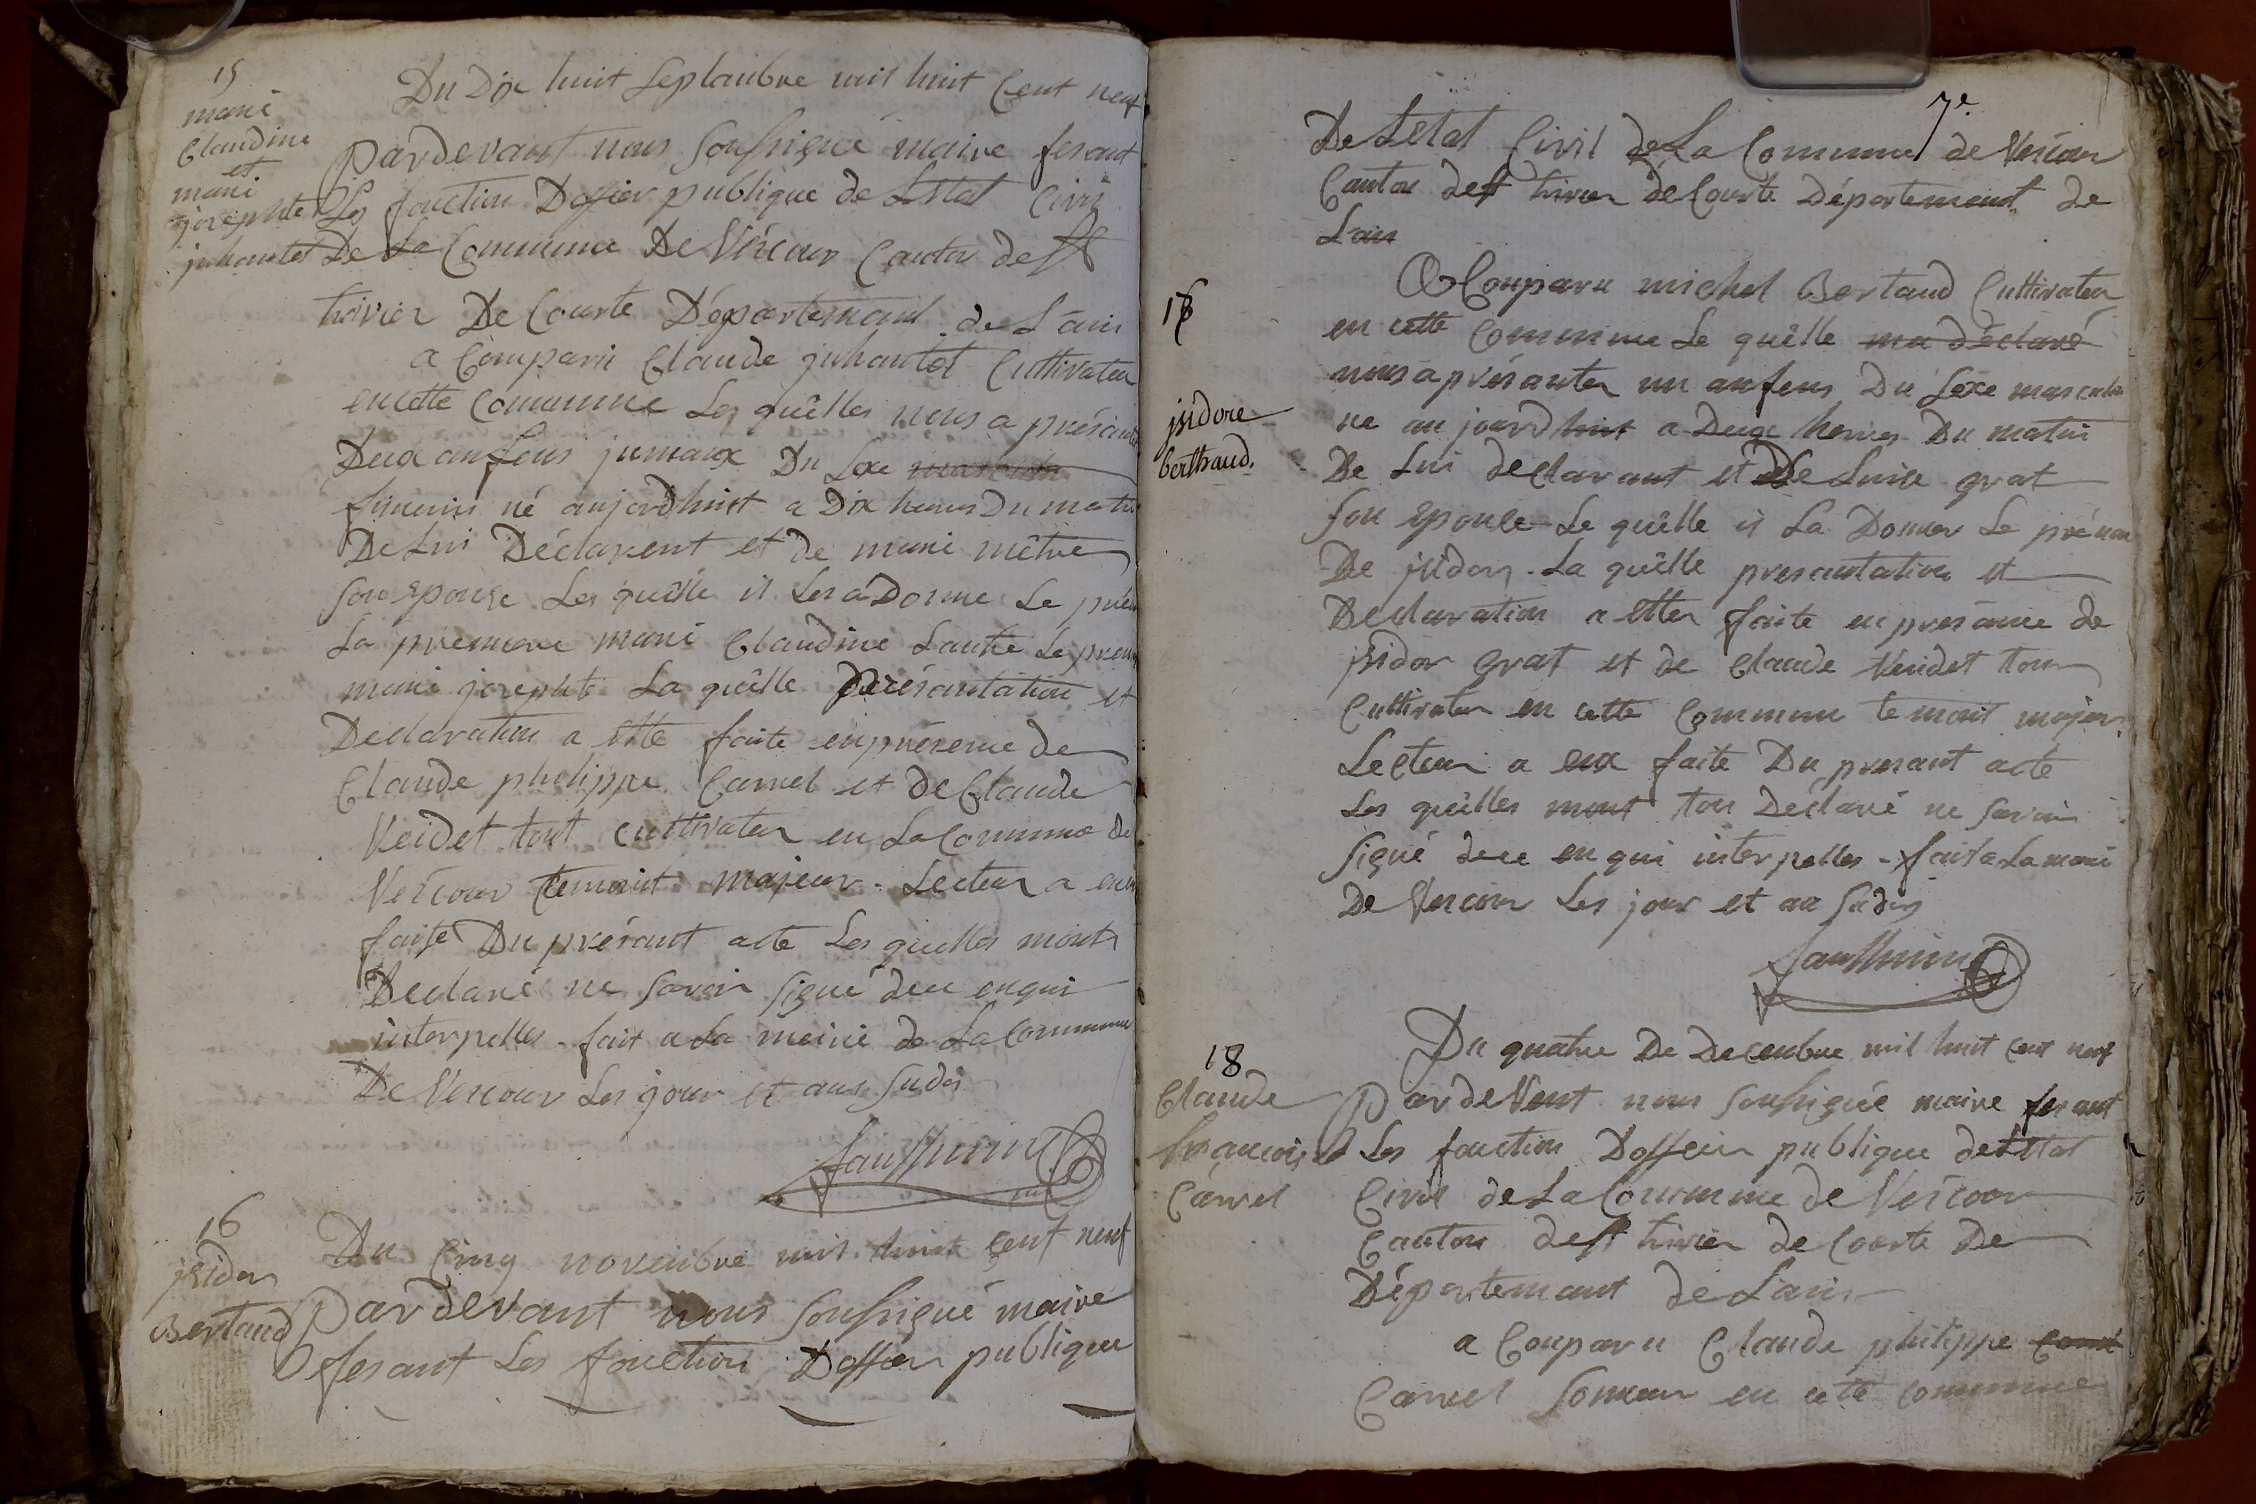 15
marie
Claudine
et
marie
josephte
juhantet
Du Dix huit Septambre mil huit Cent neuf
Pardevant nous Soussigné maire fesant
Les fonction Doffier publique de Letat Civil
De La Commune De Vescour Canton de St
trivier De Courte Département de L'ain
a Comparu Claude juhantet Cultivateur
en cette Commune Les quêlles nous a présanté
Deux anfens jumaux Du Sexe
feminin né aujordhuit a Dix heures Du matin
De Lui Déclarent et de marie
Son Epouse Les quêlle il Les a Donné Le
La premiere marie Claudine Lautre Le
marie josephte La quêlle présantation et
Declaration a ette faite en présence de
Claude philippe Carrel et de Claude
Veidet tout cultivateur en La Commune De
Vescour temoint majeur. Lecteur a eux
faite Du présant acte Les quelles mont
Declaré ne Savoir Signé dece enqui
interpelles - fait a La mairie de La Commune
De Vescour Les jour et ans Sudis
16
jsidor
Bertaud
Du Cinq novembre mil huit Cent neuf
Pardevant nous Soussigné maire
fesant Les fonction Doffier publique
7e
De Letat Civil de La Commune de Vescour
Canton de St trivier de Courte Département de
L'ain
16
jsidore
berthaud.
A Comparu michel Bertaud Cultivateur
en cette Commune Le quêlle ma déclaré
nous a présanter un anfens Du Sexe masculin
ne au jourdhuit a Deux heures Du matin
De Lui declarant et De Luise grat
Son Epouse Le quêlle il La Donner Le prénom
De jsidor. La quêlle presantation et
Declaration a etter faite en presance de
jsidor grat et de Claude Veidet tous
Cultivateur en cette Commune temoint majeur.
Lecteur a eux faite Du presant acte
Les quêlles mont tou Déclaré ne Savoir
Signé dece en qui interpelles - fait a La mairie
De Vescour Les jour et an Sudis
18
Claude
francois
Carrel
Du quatre De Decembre mil huit cent neuf
Par deVent nous Soussignée maire fesant
Les fonction Doffier publique de Letat
Civil de La Commune de Vescour
Canton de St trivier de Courte De
Département de L'ain
a Comparu Claude philippe
Carrel en cette commune